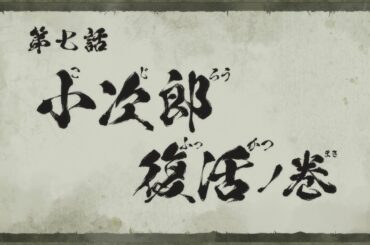 第七話
小次郎
復活ノ巻
こ じ ろう
ふっ かつ まき